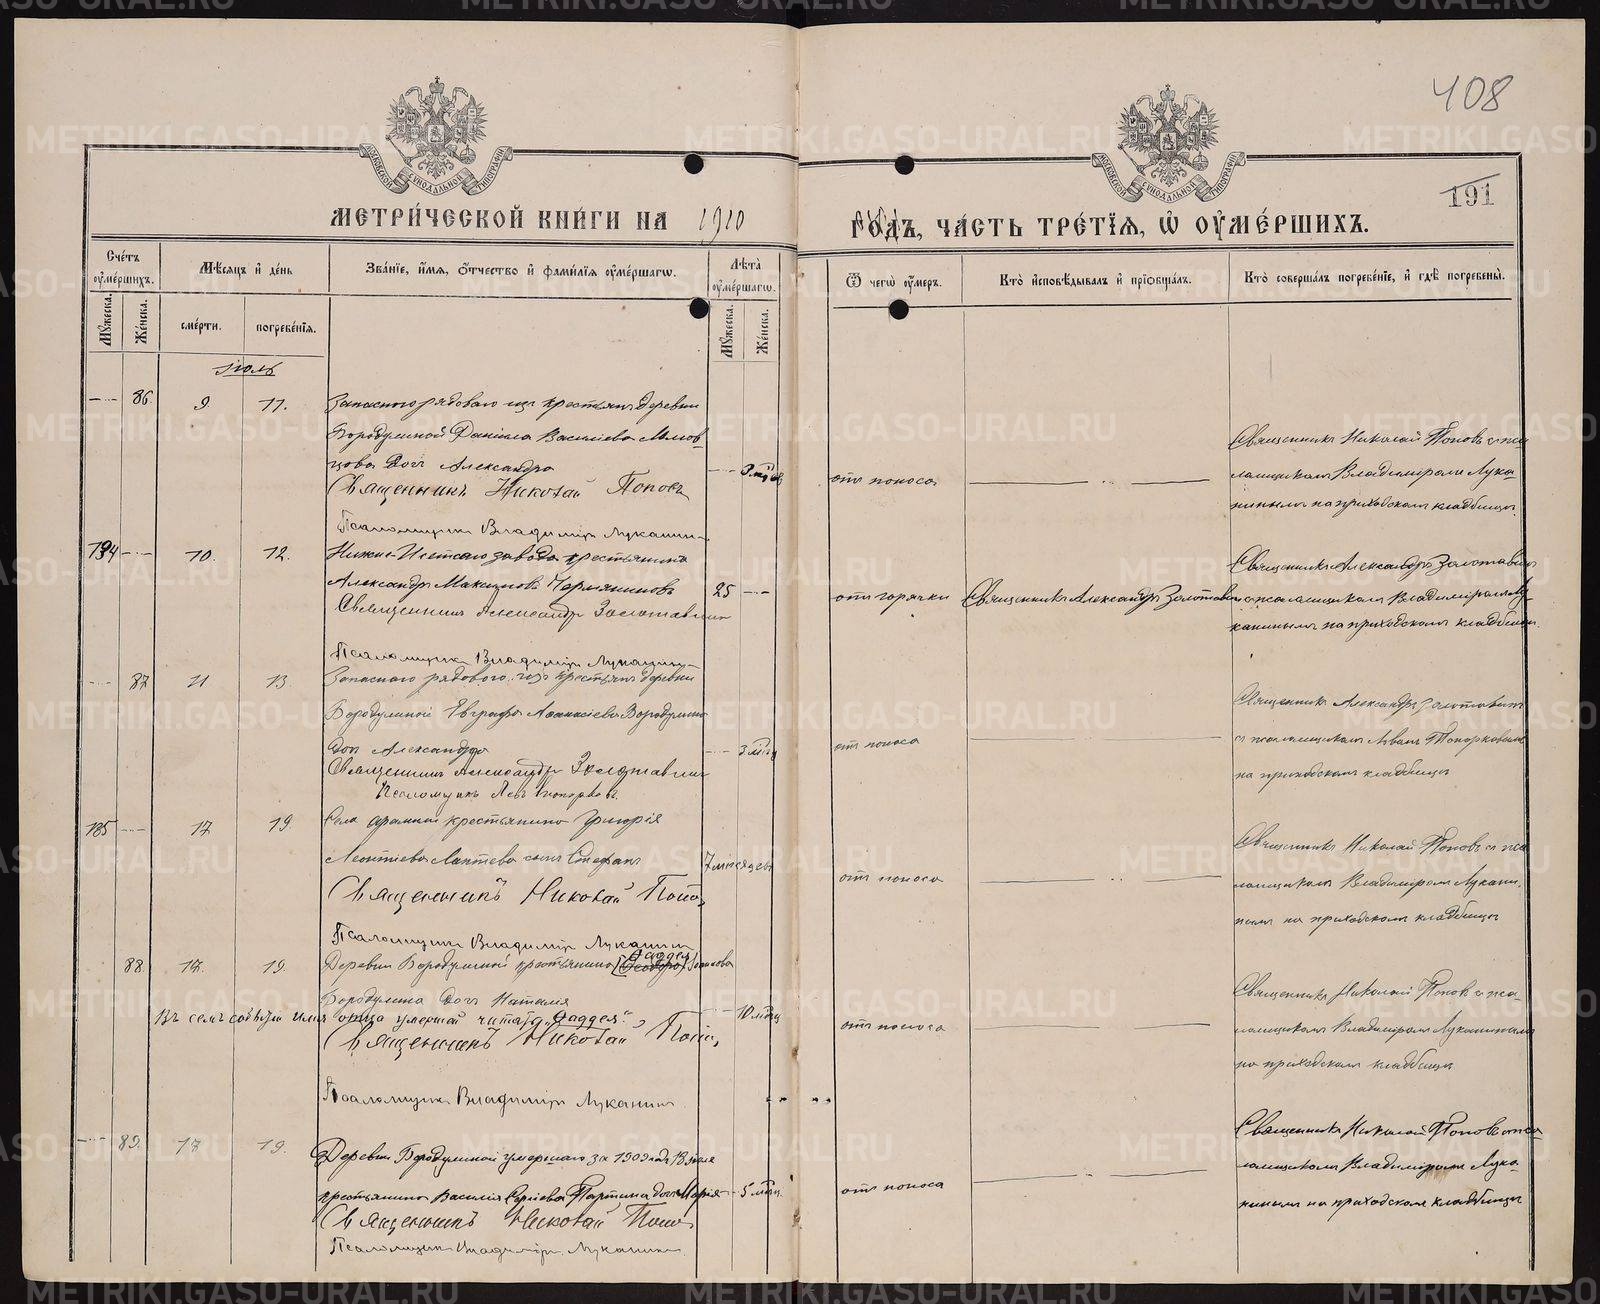 408
191
МОСКОВСКОЙ СѴНОДАЛЬНОЙ ТИПОГРАФІИ
МОСКОВСКОЙ СѴНОДАЛЬНОЙ ТИПОГРАФІИ
МЕТРИ́ЧЕСКОЙ КНИ́ГИ НА 1910 ГОДЪ, ЧА́СТЬ ТРЕ́ТІЯ, Ѡ ОУМЕ́РШИХЪ.
Сче́тъ оуме́ршихъ.
Мѣсяцъ и день
Зва́ніе, и́мя, о́тчество и фами́лія оуме́ршагѡ.
Лѣта оуме́ршагѡ.
Ѿ чегѡ оу́меръ.
Кто̀ исповѣ́дывалъ и пріобща́лъ.
Кто̀ соверша́лъ погребе́ніе, и гдѣ погребены̀.
Му́жеска.
Же́нска.
сме́рти.
погребе́нія.
Му́жеска.
Же́нска.
Іюль
86. 9. 11. Запаснаго рядоваго изъ крестьянъ деревни
Бородулиной Даніила Васильева
дочь Александра
Священникъ Николай Поповъ
Псаломщикъ Владиміръ Луканинъ
отъ поноса
Священникъ Николай Поповъ съ пса-
ломщикомъ Владиміромъ Лука-
нинымъ на приходскомъ кладбищѣ.
10. 12. Нижне-Исетскаго завода крестьянинъ
Александръ Макимовъ
25
Священникъ Александръ Золотавинъ
Псаломщикъ Владиміръ Луканинъ
отъ горячки
Священникъ Александръ Золотавинъ
Священникъ Александръ Золотавинъ
съ псаломщикомъ Владиміромъ Лу-
канинымъ на приходскомъ кладбищѣ.
87 11 13 Запаснаго рядового изъ крестьянъ деревни
Бородулиной Евграфа Аѳанасіева Бородулина
дочь Александра
3 мѣсяц
Священникъ Александръ Золотавинъ
Псаломщикъ Левъ Топорковъ.
отъ поноса
Священникъ Александръ Золотавинъ
съ псаломщикомъ Львомъ Топорковымъ
на приходскомъ кладбищѣ
17 19. Села Арамиля крестьянина Григорія
Леонтіева Лаптева сынъ Стефанъ
7 мѣсяцевъ
Священникъ Николай Поповъ
Псаломщикъ Владиміръ Луканинъ
отъ поноса
Священникъ Николай Поповъ съ пса-
ломщикомъ Владиміромъ Лукани-
нымъ на приходскомъ кладбищѣ
88. 17. 19. Деревни Бородулиной крестьянина [Ѳеодора] Ѳаддея Іоаннова
Бородулина дочь Наталія
10 мѣсяц
Въ семъ имя отца умершей читать "Ѳаддея".
Священникъ Николай Поповъ
Псаломщикъ Владиміръ Луканинъ.
отъ поноса
Священникъ Николай Поповъ съ пса-
ломщикомъ Владиміромъ Луканинымъ
на приходскомъ кладбищѣ
89. 17 19. Деревни Бородулиной умершаго за 1909 годъ 18 Іюля
крестьянина Василія Сергіева дочь Марія
5 мѣсяц.
Священникъ Николай Поповъ
Псаломщикъ Владиміръ Луканинъ.
отъ поноса
Священникъ Николай Поповъ съ пса-
ломщикомъ Владиміромъ Лука-
нинымъ на приходскомъ кладбищѣ
METRIKI.GASO-URAL.RU